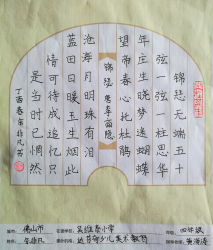 锦瑟无端五十
弦一弦一柱思华
年庄生晓梦迷蝴蝶
望帝春心托杜鹃
锦瑟 唐李商隐
沧海月明珠有泪
蓝田日暖玉生烟此
情可待成追忆只
是当时已惘然
佛山市
小学
四年级
少儿美术教育